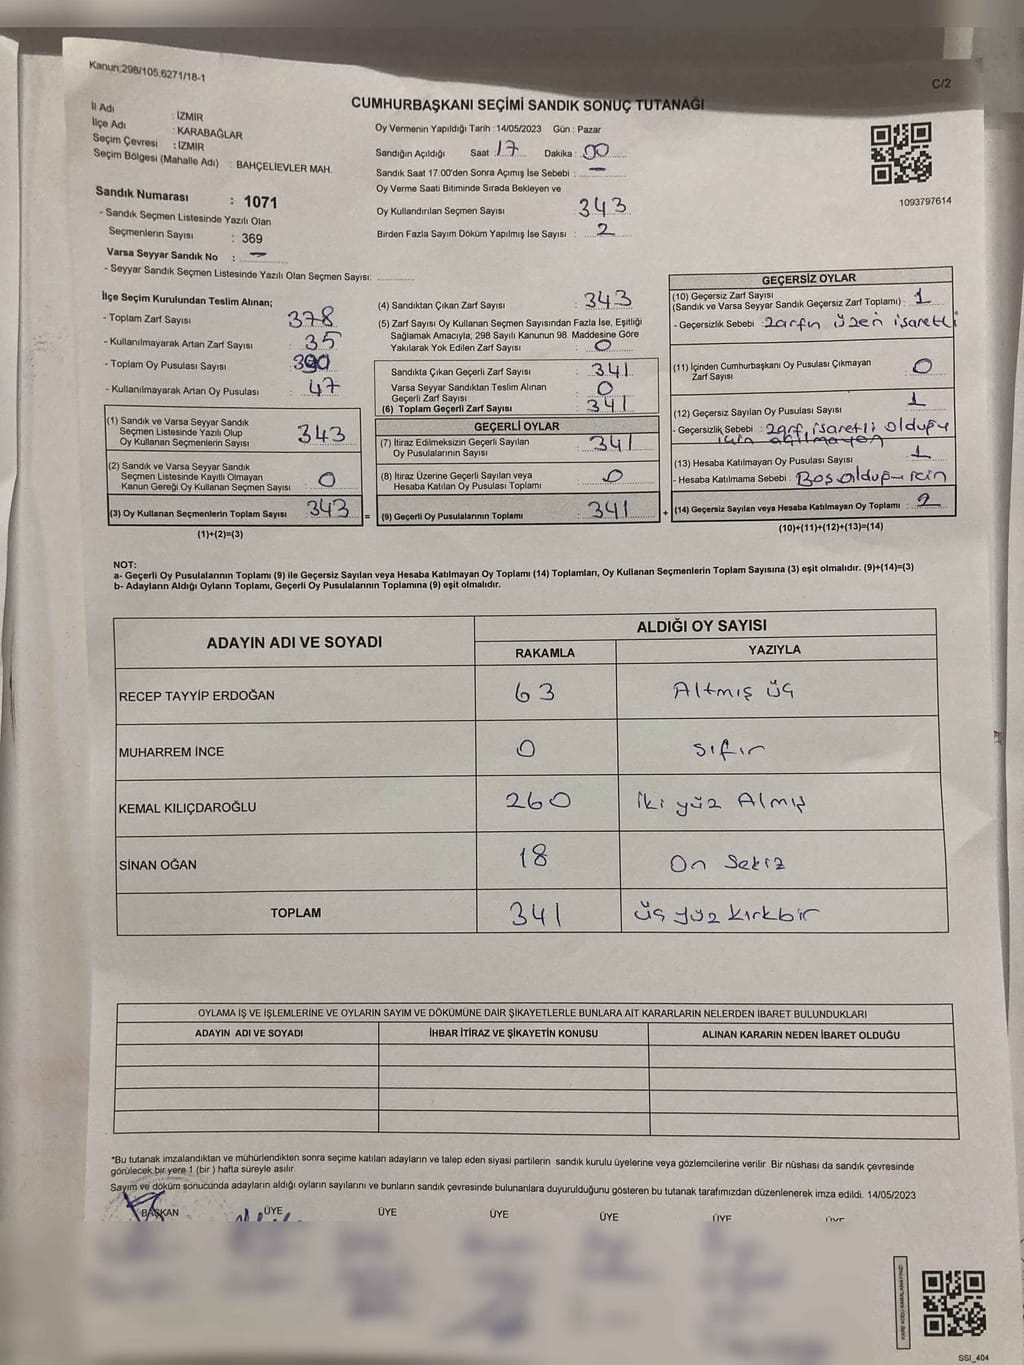 Kanun;298/105,6271/18-1
C/2
CUMHURBAŞKANI SEÇİMİ SANDIK SONUÇ TUTANAĞI
İl Adı : İZMİR
İlçe Adı : KARABAĞLAR
Seçim Çevresi : İZMİR
Seçim Bölgesi (Mahalle Adı) : BAHÇELİEVLER MAH.
Sandık Numarası : 1071
- Sandık Seçmen Listesinde Yazılı Olan
Seçmenlerin Sayısı : 369
Varsa Seyyar Sandık No : —
- Seyyar Sandık Seçmen Listesinde Yazılı Olan Seçmen Sayısı:
Oy Vermenin Yapıldığı Tarih : 14/05/2023 Gün : Pazar
Sandığın Açıldığı Saat : 17 Dakika : 00
Sandık Saat 17.00'den Sonra Açımış İse Sebebi : —
Oy Verme Saati Bitiminde Sırada Bekleyen ve
Oy Kullandırılan Seçmen Sayısı : 343
Birden Fazla Sayım Döküm Yapılmış İse Sayısı : 2
1093797614
İlçe Seçim Kurulundan Teslim Alınan;
- Toplam Zarf Sayısı : 378
- Kullanılmayarak Artan Zarf Sayısı : 35
- Toplam Oy Pusulası Sayısı : 390
- Kullanılmayarak Artan Oy Pusulası : 47
(1) Sandık ve Varsa Seyyar Sandık
Seçmen Listesinde Yazılı Olup
Oy Kullanan Seçmenlerin Sayısı : 343
(2) Sandık ve Varsa Seyyar Sandık
Seçmen Listesinde Kayıtlı Olmayan
Kanun Gereği Oy Kullanan Seçmen Sayısı : 0
(3) Oy Kullanan Seçmenlerin Toplam Sayısı : 343 =
(1)+(2)=(3)
(4) Sandıktan Çıkan Zarf Sayısı : 343
(5) Zarf Sayısı Oy Kullanan Seçmen Sayısından Fazla İse, Eşitliği
Sağlamak Amacıyla; 298 Sayılı Kanunun 98. Maddesine Göre
Yakılarak Yok Edilen Zarf Sayısı : 0
Sandıkta Çıkan Geçerli Zarf Sayısı : 341
Varsa Seyyar Sandıktan Teslim Alınan
Geçerli Zarf Sayısı : 0
(6) Toplam Geçerli Zarf Sayısı : 341
GEÇERLİ OYLAR
(7) İtiraz Edilmeksizin Geçerli Sayılan
Oy Pusulalarının Sayısı : 341
(8) İtiraz Üzerine Geçerli Sayılan veya
Hesaba Katılan Oy Pusulası Toplamı : 0
(9) Geçerli Oy Pusulalarının Toplamı : 341 +
GEÇERSİZ OYLAR
(10) Geçersiz Zarf Sayısı
(Sandık ve Varsa Seyyar Sandık Geçersiz Zarf Toplamı) : 1
- Geçersizlik Sebebi : Zarfın üzeri işaretli
(11) İçinden Cumhurbaşkanı Oy Pusulası Çıkmayan
Zarf Sayısı : 0
(12) Geçersiz Sayılan Oy Pusulası Sayısı : 1
- Geçersizlik Sebebi : Zarf işaretli olduğu
için açılmayan
(13) Hesaba Katılmayan Oy Pusulası Sayısı : 1
- Hesaba Katılmama Sebebi : Boş olduğu için
(14) Geçersiz Sayılan veya Hesaba Katılmayan Oy Toplamı : 2
(10)+(11)+(12)+(13)=(14)
NOT:
a- Geçerli Oy Pusulalarının Toplamı (9) ile Geçersiz Sayılan veya Hesaba Katılmayan Oy Toplamı (14) Toplamları, Oy Kullanan Seçmenlerin Toplam Sayısına (3) eşit olmalıdır. (9)+(14)=(3)
b- Adayların Aldığı Oyların Toplamı, Geçerli Oy Pusulalarının Toplamına (9) eşit olmalıdır.
ADAYIN ADI VE SOYADI ALDIĞI OY SAYISI
RAKAMLA YAZIYLA
RECEP TAYYİP ERDOĞAN 63 Altmış üç
MUHARREM İNCE 0 sıfır
KEMAL KILIÇDAROĞLU 260 İki yüz Almış
SİNAN OĞAN 18 On Sekiz
TOPLAM 341 üç yüz kırkbir
OYLAMA İŞ VE İŞLEMLERİNE VE OYLARIN SAYIM VE DÖKÜMÜNE DAİR ŞİKAYETLERLE BUNLARA AİT KARARLARIN NELERDEN İBARET BULUNDUKLARI
ADAYIN ADI VE SOYADI İHBAR İTİRAZ VE ŞİKAYETİN KONUSU ALINAN KARARIN NEDEN İBARET OLDUĞU
*Bu tutanak imzalandıktan ve mühürlendikten sonra seçime katılan adayların ve talep eden siyasi partilerin sandık kurulu üyelerine veya gözlemcilerine verilir. Bir nüshası da sandık çevresinde
görülecek bir yere 1 (bir ) hafta süreyle asılır.
Sayım ve döküm sonucunda adayların aldığı oyların sayılarını ve bunların sandık çevresinde bulunanlara duyurulduğunu gösteren bu tutanak tarafımızdan düzenlenerek imza edildi. 14/05/2023
BAŞKAN ÜYE ÜYE ÜYE ÜYE ÜYE ÜYE
SSI_404